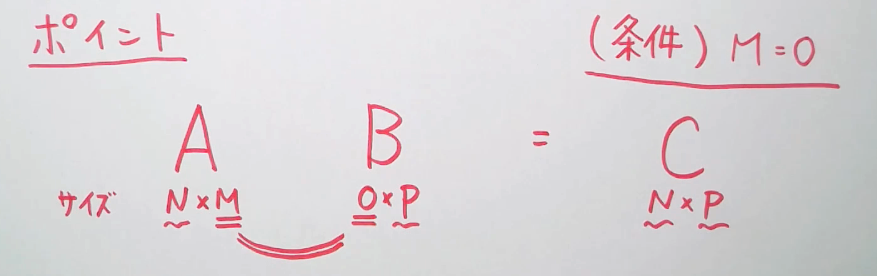 ポイント
(条件) M=O
A B = C
サイズ N×M O×P N×P